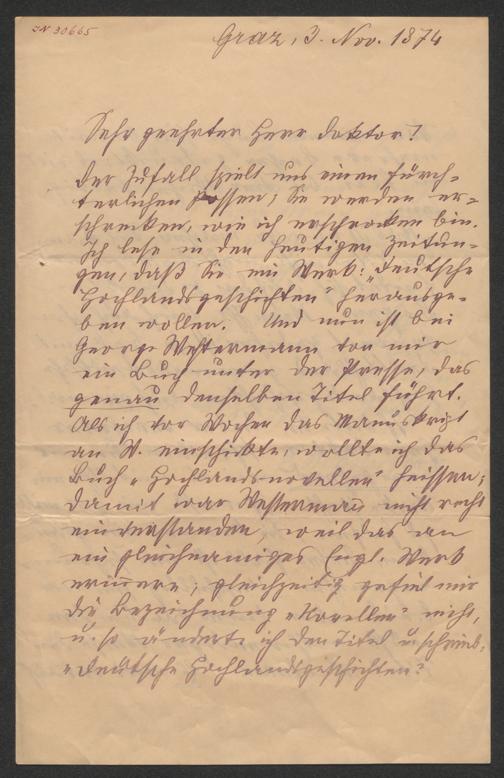 IN 30665
Graz, 3. Nov. 1874
Sehr geehrter Herr Doktor!
Der Zufall spielt uns einen fürch-
terlichen Possen; Sie werden er-
schrecken, wie ich erschrocken bin.
Ich lese in den heutigen Zeitun-
gen, daß Sie ein Werk: „Deutsche
Hochlandsgeschichten" herausge-
ben wollen. Und nun ist bei
George Westermann von mir
ein Buch unter der Presse, das
genau denselben Titel führt.
Als ich vor Wochen das Manuskript
an W. einschickte, wollte ich das
Buch „Hochlandsnovellen" heissen;
damit war Westermann nicht recht
einverstanden, weil das an
ein gleichnamiges Engl. Werk
erinnere; gleichzeitig gefiel mir
die Bezeichnung „Novellen" nicht,
u. so änderte ich den Titel u. schrieb:
„Deutsche Hochlandsgeschichten."